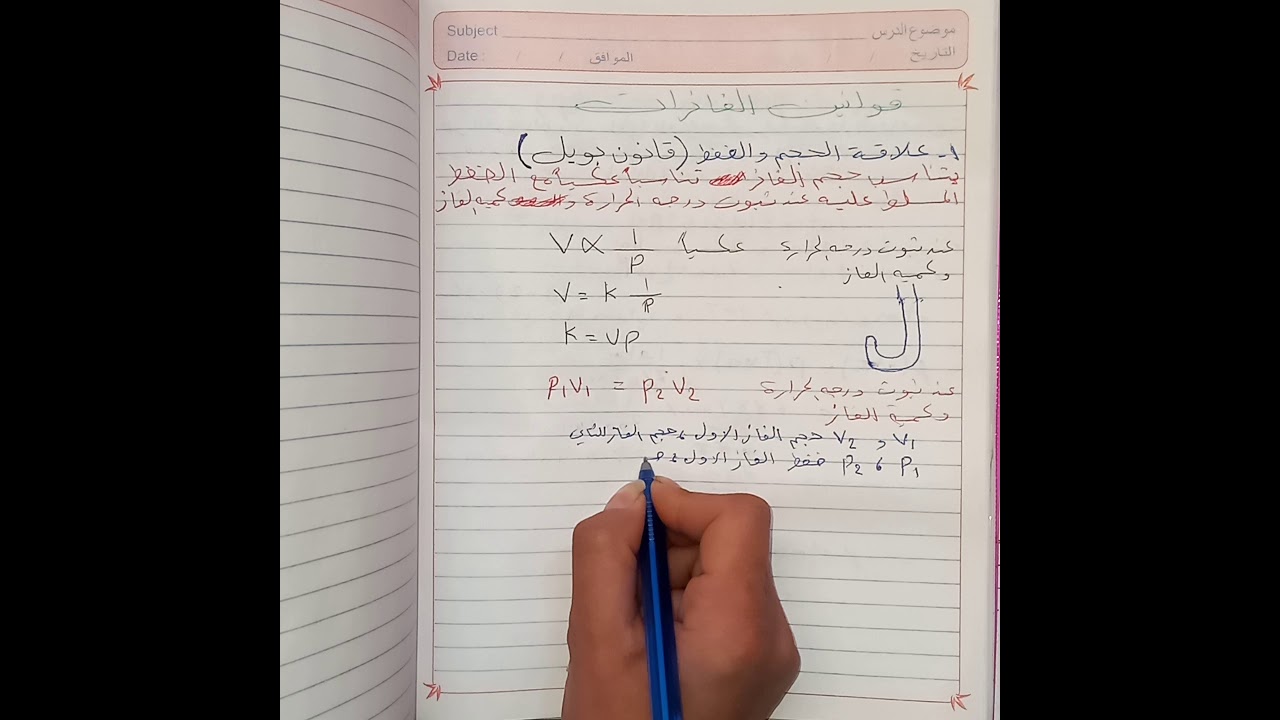 Subject موضوع الدرس
Date : / / الموافق / / التاريخ
قوانين الغازات
١- علاقة الحجم والضغط (قانون بويل)
يتناسب حجم الغاز تناسباً عكسياً مع الضغط
المسلط عليه عند ثبوت درجه الحرارة و كميه الغاز
عند ثبوت درجه الحرارة عكسياً V ∝ 1/P
وكميه الغاز
V = K 1/P
K = VP
عند ثبوت درجه الحرارة P₁V₁ = P₂V₂
وكمية الغاز
V₁ و V₂ حجم الغاز الاول، حجم الغاز الثاني
P₁ ، P₂ ضغط الغاز الاول،